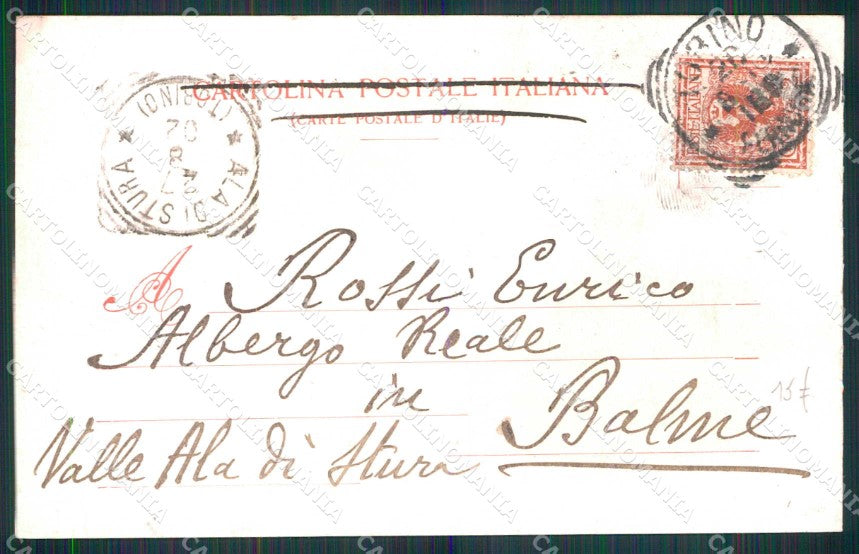 CARTOLINA POSTALE ITALIANA
(CARTE POSTALE D'ITALIE)
TORINO
ALA DI STURA
(TORINO)
02
A Rossi Enrico
Albergo Reale
in
Balme
Valle Ala di Stura
15€
CARTOLINOMANIA